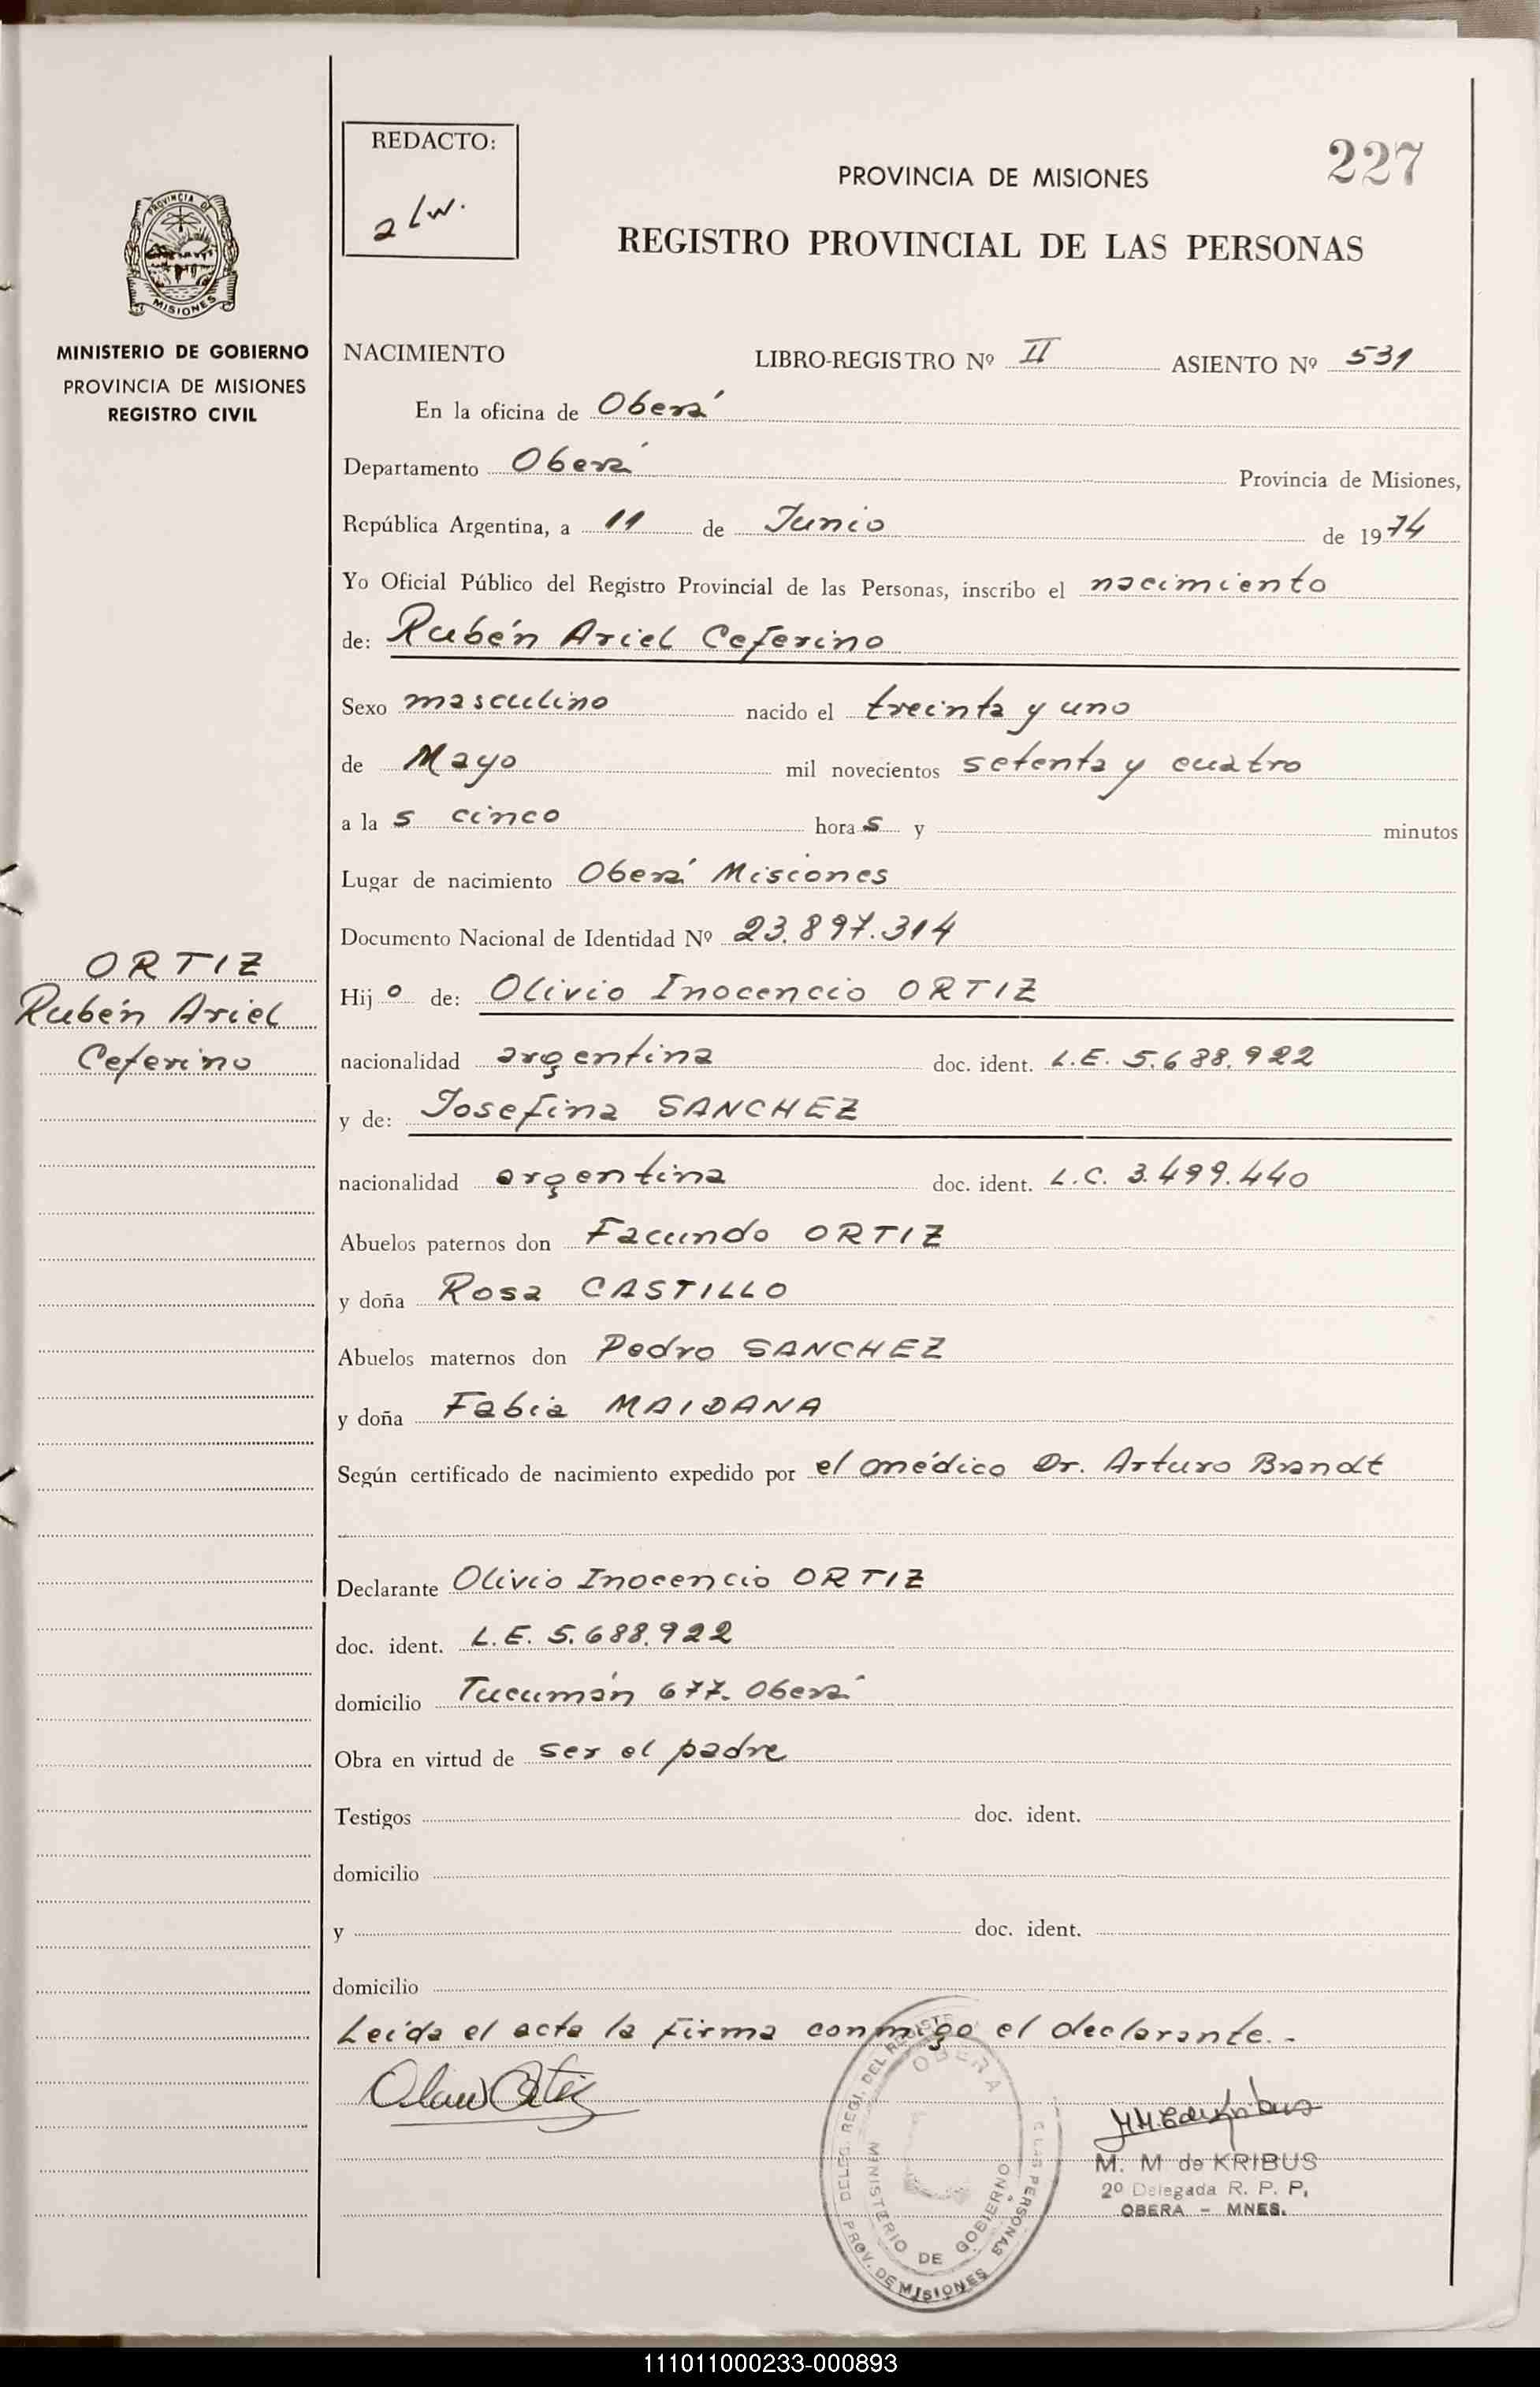 REDACTO:
PROVINCIA DE MISIONES
227
REGISTRO PROVINCIAL DE LAS PERSONAS
PROVINCIA DE
MISIONES
MINISTERIO DE GOBIERNO
PROVINCIA DE MISIONES
REGISTRO CIVIL
NACIMIENTO LIBRO-REGISTRO Nº II ASIENTO Nº 531
En la oficina de Oberá
Departamento Oberá Provincia de Misiones,
República Argentina, a 11 de Junio de 1974
Yo Oficial Público del Registro Provincial de las Personas, inscribo el nacimiento
de: Rubén Ariel Ceferino
Sexo masculino nacido el treinta y uno
de Mayo mil novecientos setenta y cuatro
a la s cinco hora s y minutos
Lugar de nacimiento Oberá Misiones
Documento Nacional de Identidad Nº 23.897.314
ORTIZ
Rubén Ariel
Ceferino
Hij o de: Olivio Inocencio ORTIZ
nacionalidad argentina doc. ident. L.E. 5.688.922
y de: Josefina SANCHEZ
nacionalidad argentina doc. ident. L.C. 3.499.440
Abuelos paternos don Facundo ORTIZ
y doña Rosa CASTILLO
Abuelos maternos don Pedro SANCHEZ
y doña Fabia MAIDANA
Según certificado de nacimiento expedido por el médico Dr. Arturo Brandt
Declarante Olivio Inocencio ORTIZ
doc. ident. L.E. 5.688.922
domicilio Tucumán 677. Oberá
Obra en virtud de ser el padre
Testigos doc. ident.
domicilio
y doc. ident.
domicilio
Leída el acta la firma conmigo el declarante.-
DELEG. REGI. DEL LAS PERSONAS
OBERA
MINISTERIO DE GOBIERNO
PROV. DE MISIONES
M. M de KRIBUS
2º Delegada R. P. P.
OBERA - MNES.
111011000233-000893